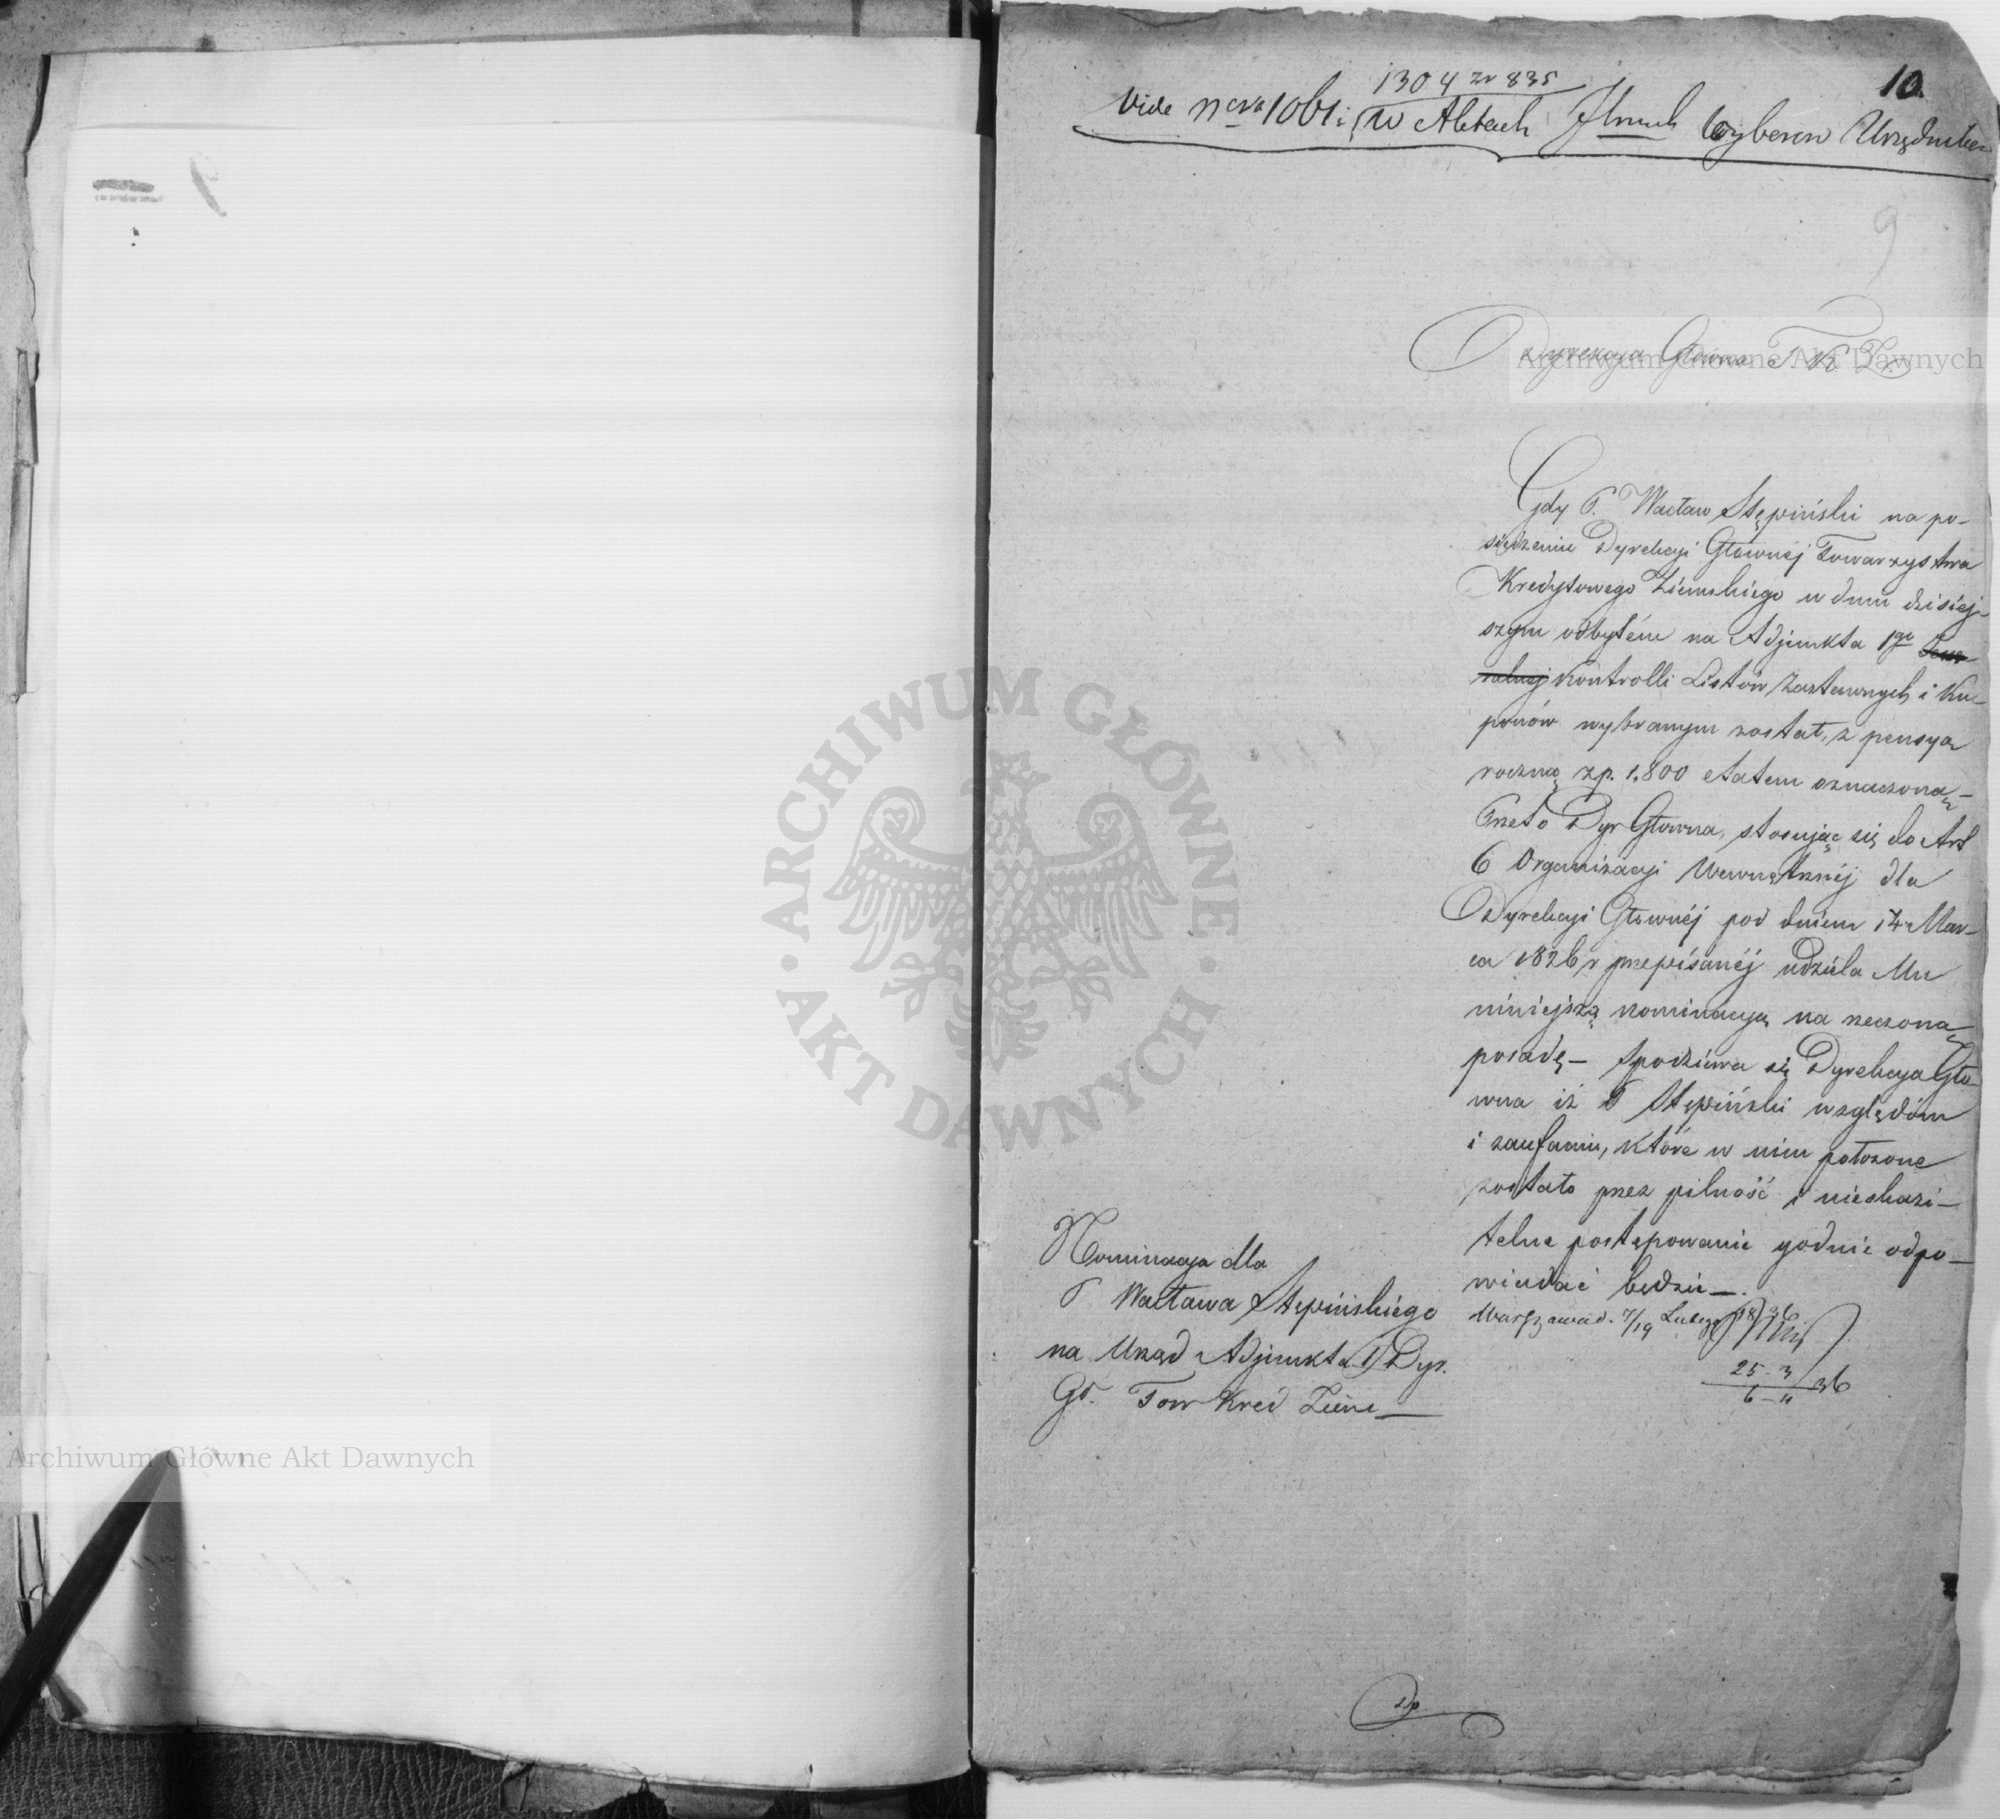 10
1304 zr 835
Vide ncra 1061; w Aktach Wyboru Urzędników
9
Dyrekcya Główna T. K. Z.
Gdy P. Wacław Stępiński na po-
siedzeniu Dyrekcyi Głównéj Towarzystwa
Kredytowego Ziemskiego w dniu dzisiej-
szym odbytém na Adjunkta 1go
Kontrolli Listów Zastawnych i Ku-
ponów wybranym został, z pensyą
roczną zp. 1,800 etatem oznaczoną –
Przeto Dyr Głowna, stosując się do Art
6 Organizacyi Wewnętrznéj dla
Dyrekcyi Głownéj pod dniem 14 Mar-
ca 1826 r przepisanéj udziela Mu
niniejszą nominacyą na rzeczoną
posadę – Spodziewa się Dyrekcya Gło-
wna iż P Stępiński względom
i zaufaniu, które w nim położone
zostało przez pilność i nieskazi-
telne postępowanie godnie odpo-
wiadać będzie –.
Warszawa d. 7/19 Lutego 1836
25 - 3 / 36
6 - 4
Nominacya dla
P Wacława Stępińskiego
na Urząd Adjunkta Dyr.
Gł. Tow Kred Ziem –
ARCHIWUM GŁÓWNE AKT DAWNYCH
Archiwum Główne Akt Dawnych
Archiwum Główne Akt Dawnych